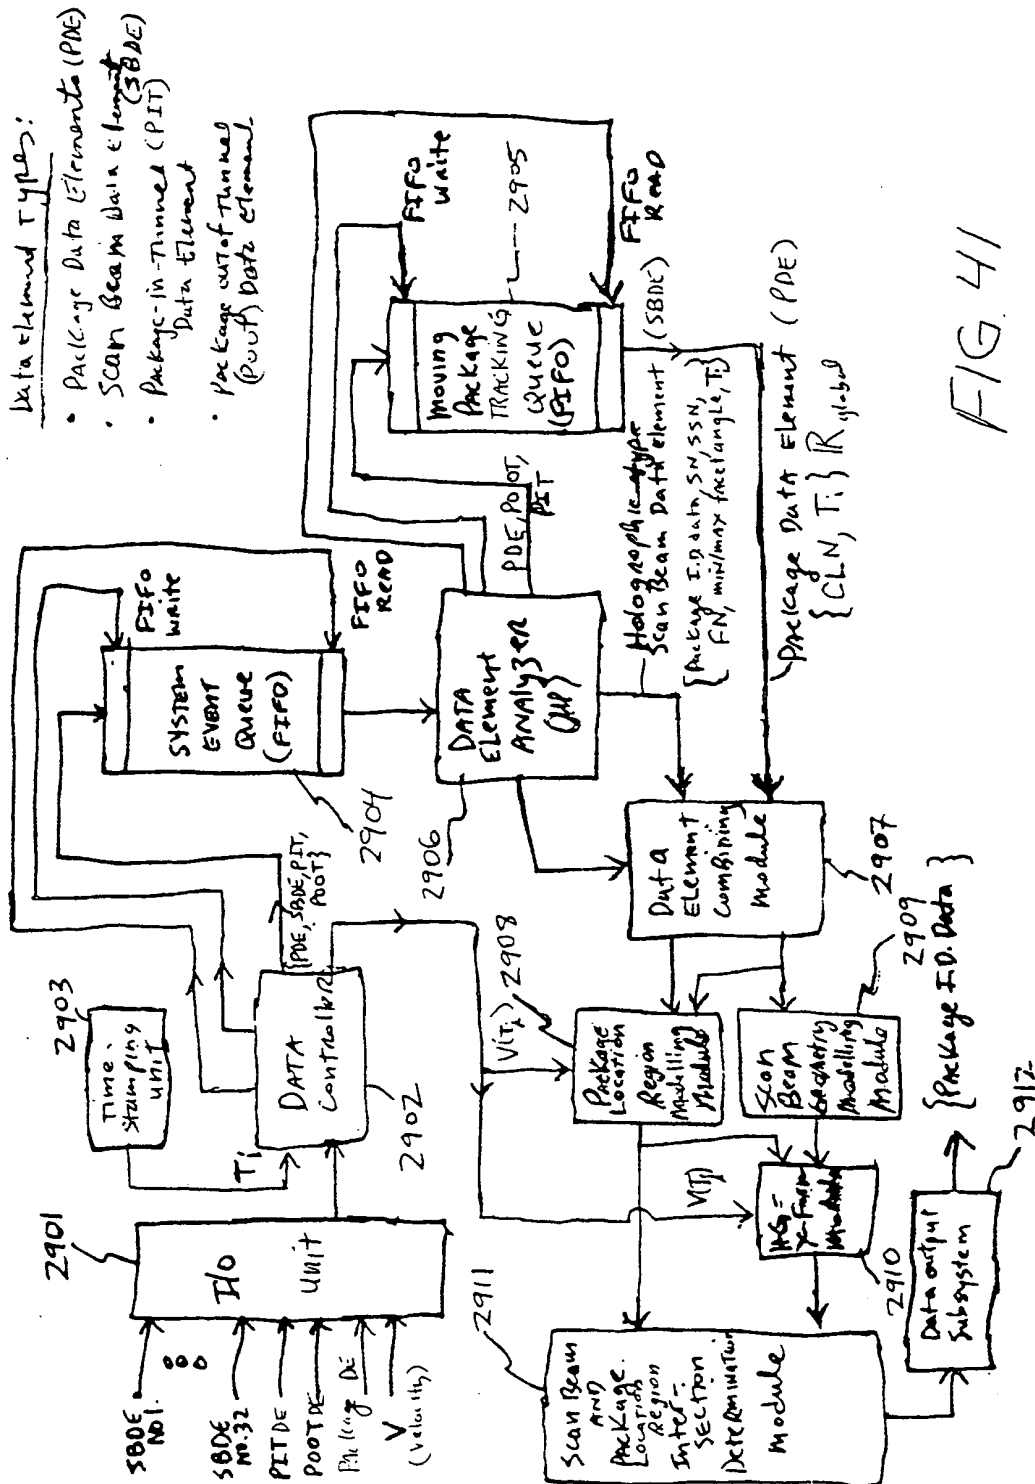 Data Element Types:
• Package Data Elements (PDE)
• Scan Beam Data Element
(SBDE)
• Package-in-Tunnel (PIT)
Data Element
• Package out of Tunnel
(POOT) Data Element
2901
I/O
unit
SBDE
No1.
SBDE
No.32
PIT DE
POOT DE
Package DE
V
(velocity)
2903
Time-
stamping
unit
Ti
DATA
Controller
2902
{PDE, SBDE, PIT,
POOT}
FIFO
write
SYSTEM
EVENT
Queue
(FIFO)
FIFO
READ
2904
DATA
Element
ANALYZER
2906
PDE, POOT,
PIT
FIFO
Write
Moving
Package
TRACKING
Queue
(FIFO)
2905
FIFO
READ
(SBDE)
Holographic-type
Scan Beam Data element
{Package I.D data, SN, SSN,
FN, min/max facet angle, Ti}
Package Data Element (PDE)
{CLN, Ti} Rglobal
Data
Element
Combining
Module
2907
V(Ti)
2908
Package
Location
Region
Modelling
Module
Scan
Beam
Geometry
Modelling
Module
2909
V(Ti)
HG=
X-Form
Module
2910
2911
Scan Beam
AND
Package
Location
Region
Inter-
SECTION
Determination
Module
Data output
Subsystem
{Package I.D. Data}
2912
FIG. 41